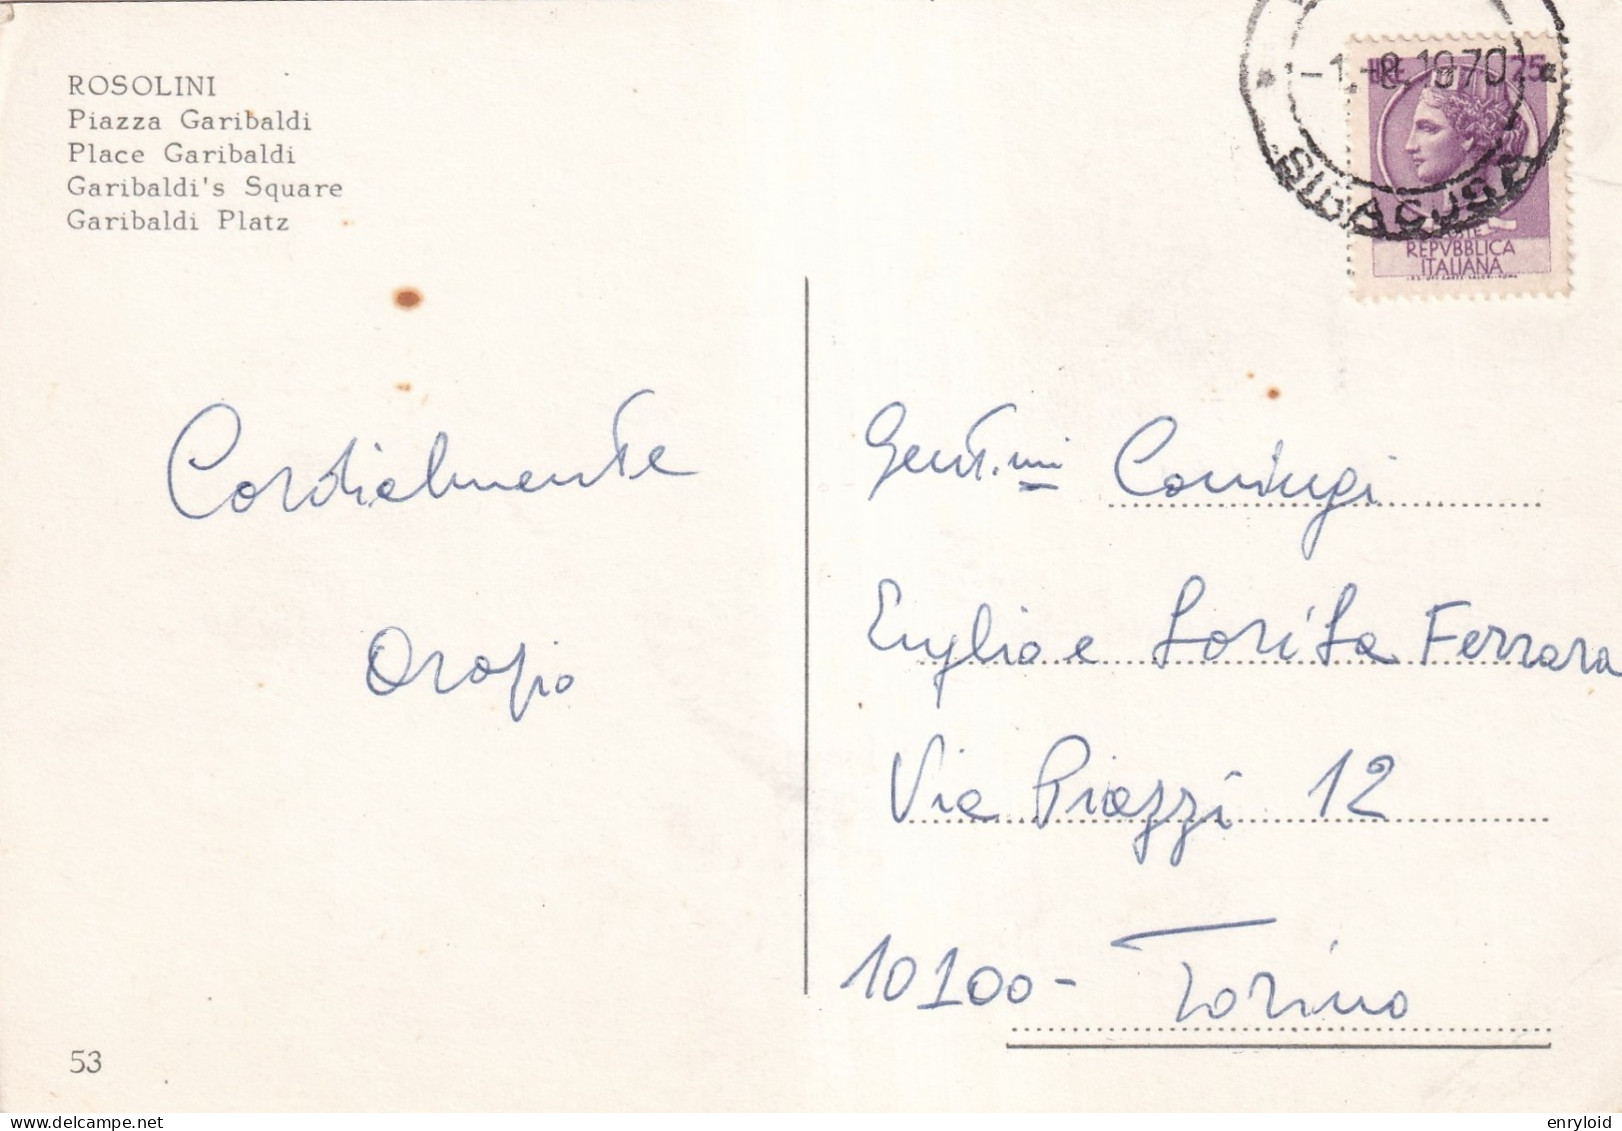 ROSOLINI
Piazza Garibaldi
Place Garibaldi
Garibaldi's Square
Garibaldi Platz
-1.-8.1970
SIRACUSA
LIRE 25
POSTE
REPVBBLICA
ITALIANA
Cordialmente
Orazio
Gent.mi Coniugi
e Lorita Ferrara
Via Piazzi 12
10100- Torino
53
enryloid